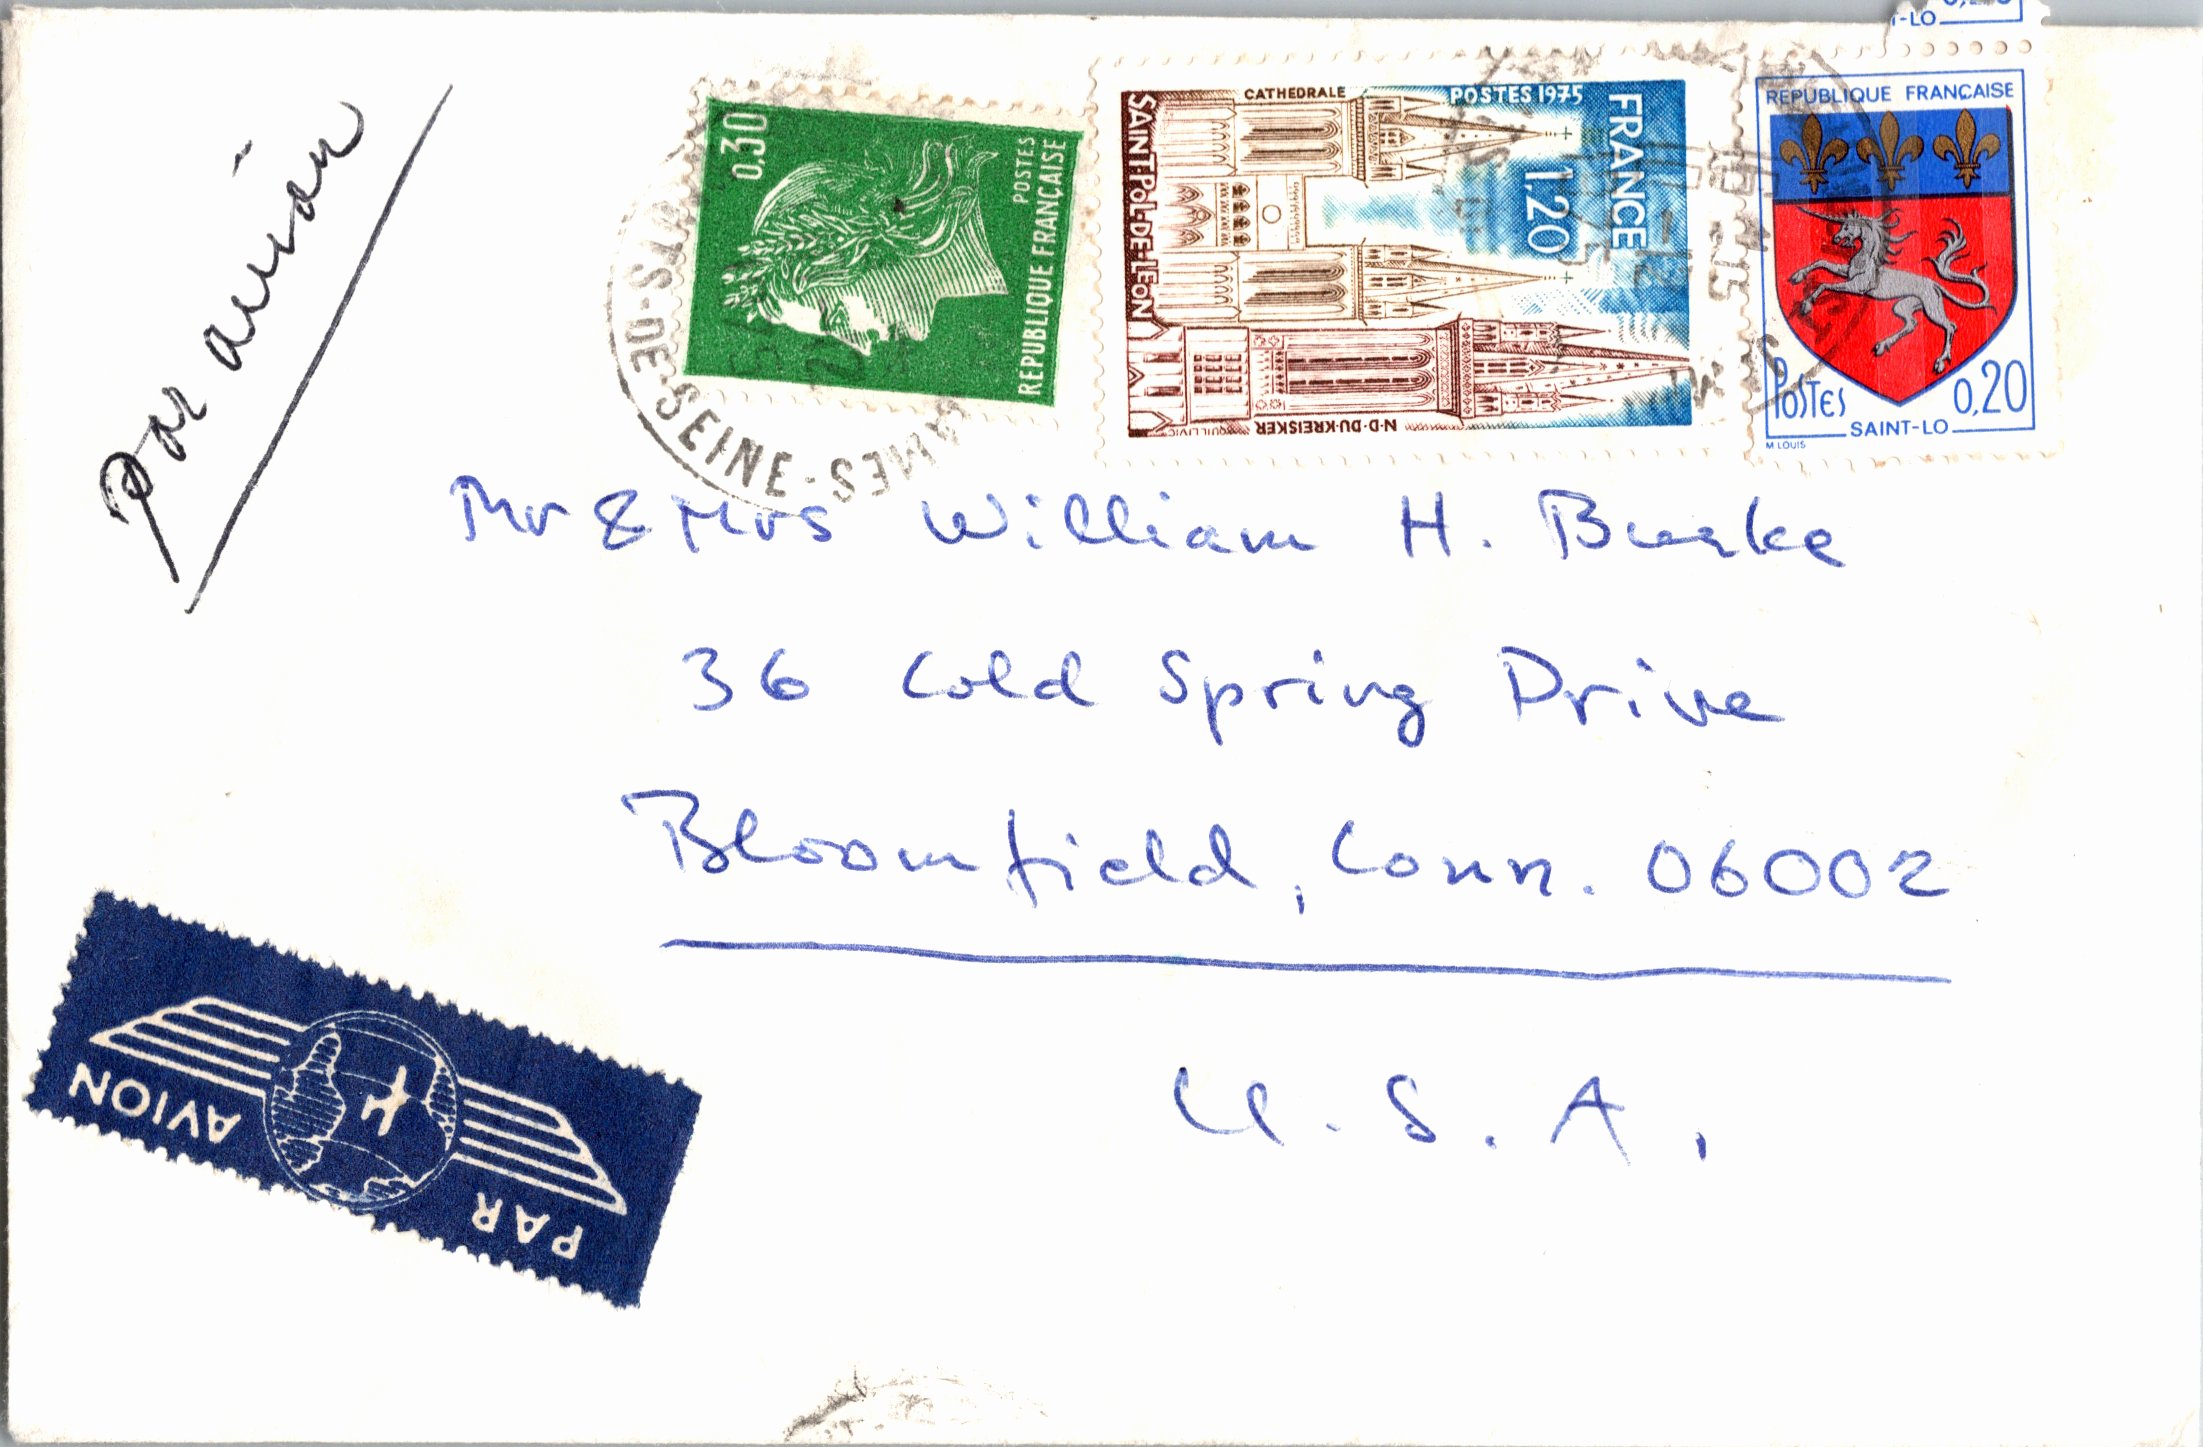 T-LO
par avion
0,30
POSTES
REPUBLIQUE FRANÇAISE
CATHEDRALE
POSTES 1975
SAINT-POL-DE-LEON
FRANCE
1,20
N-D-DU-KREISKER
REPUBLIQUE FRANÇAISE
POSTES
0,20
SAINT-LO
M LOUIS
STS-DE-SEINE
Mr & Mrs William H. Burke
36 Cold Spring Drive
Bloomfield, Conn. 06002
U.S.A.
PAR AVION